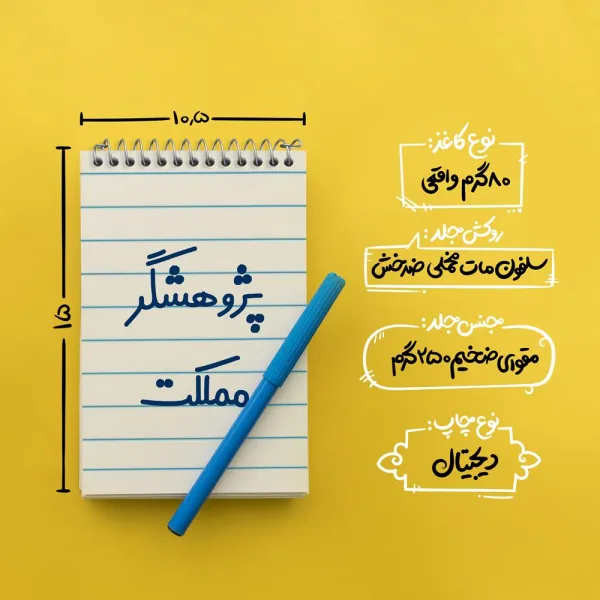 ۱۰,۵
۱۵
پژوهشگر
مملکت
نوع کاغذ:
۸۰گرم واقعی
روکش جلد:
سلفون مات مخملی ضدخش
جنس جلد:
مقوای ضخیم ۲۵۰ گرم
نوع چاپ:
دیجیتال